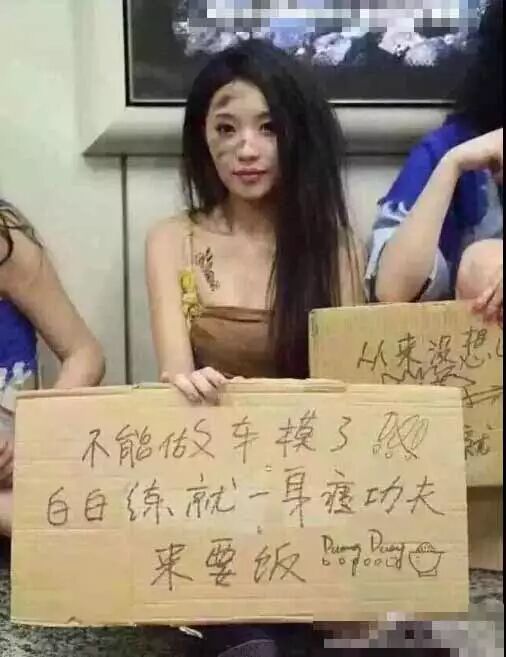 不能做车模了
白白练就一身功夫
来要饭 Duang Duang
从来没想
就